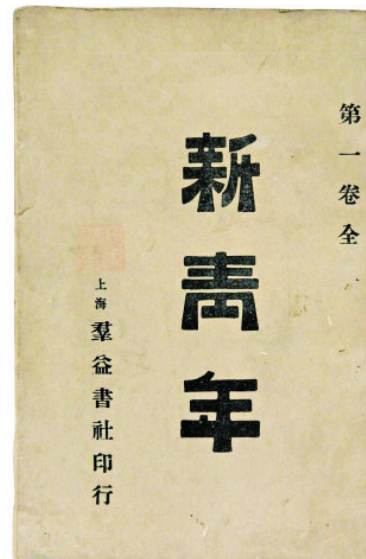 第一卷全
新青年
上海羣益書社印行